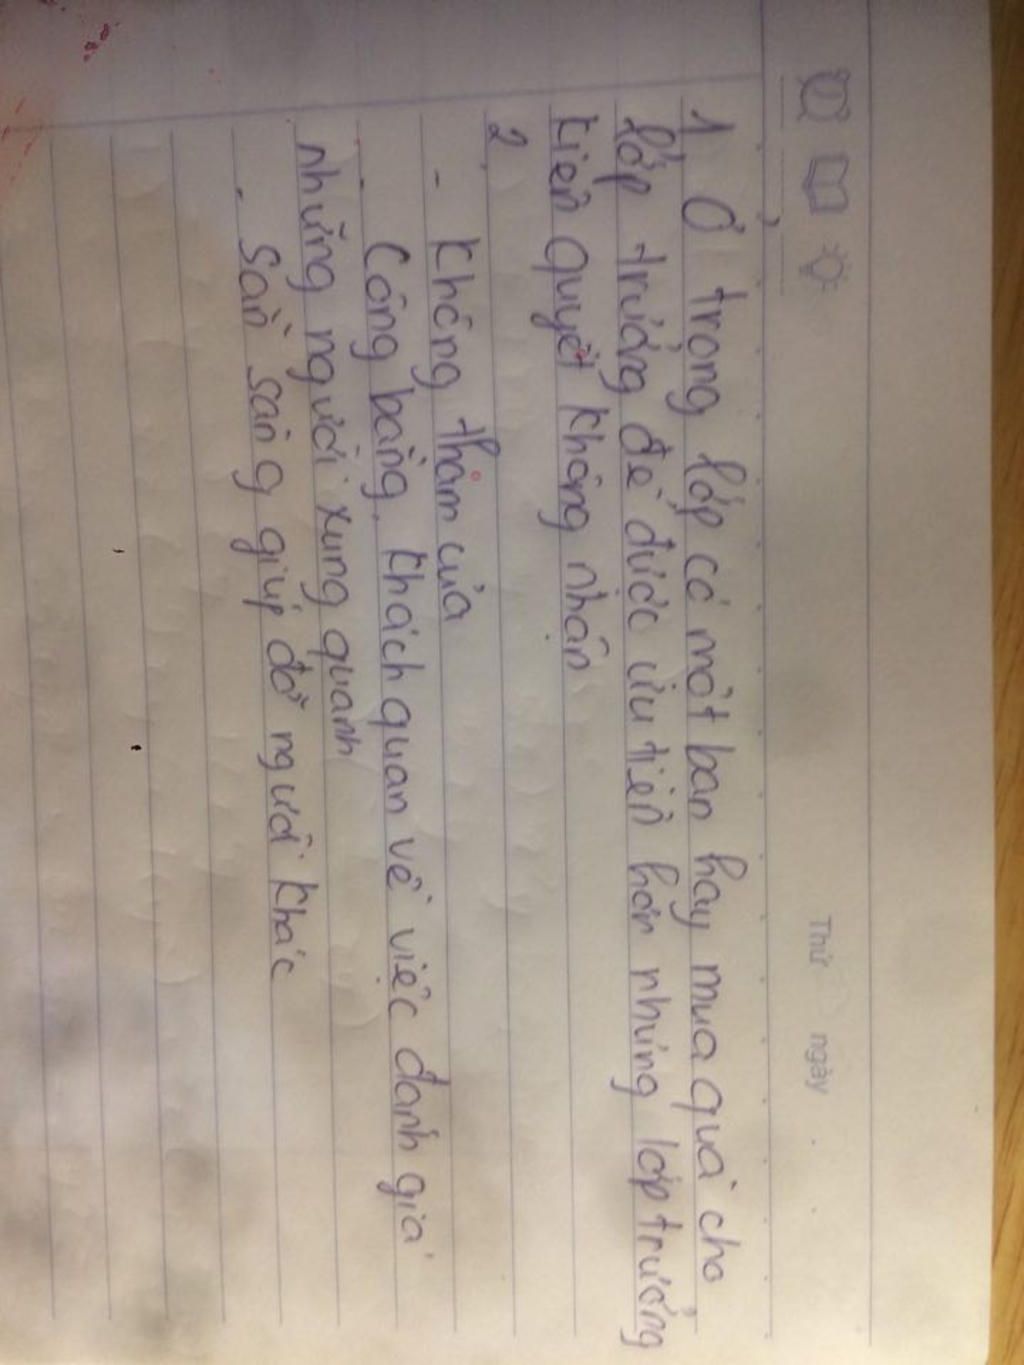 Thứ ngày
1, Ở trong lớp có một bạn hay mua quà cho
lớp trưởng để được ưu tiên hơn nhưng lớp trưởng
kiên quyết không nhận
2,
- Không tham của
- Công bằng, khách quan về việc đánh giá
những người xung quanh
- Sẵn sàng giúp đỡ người khác